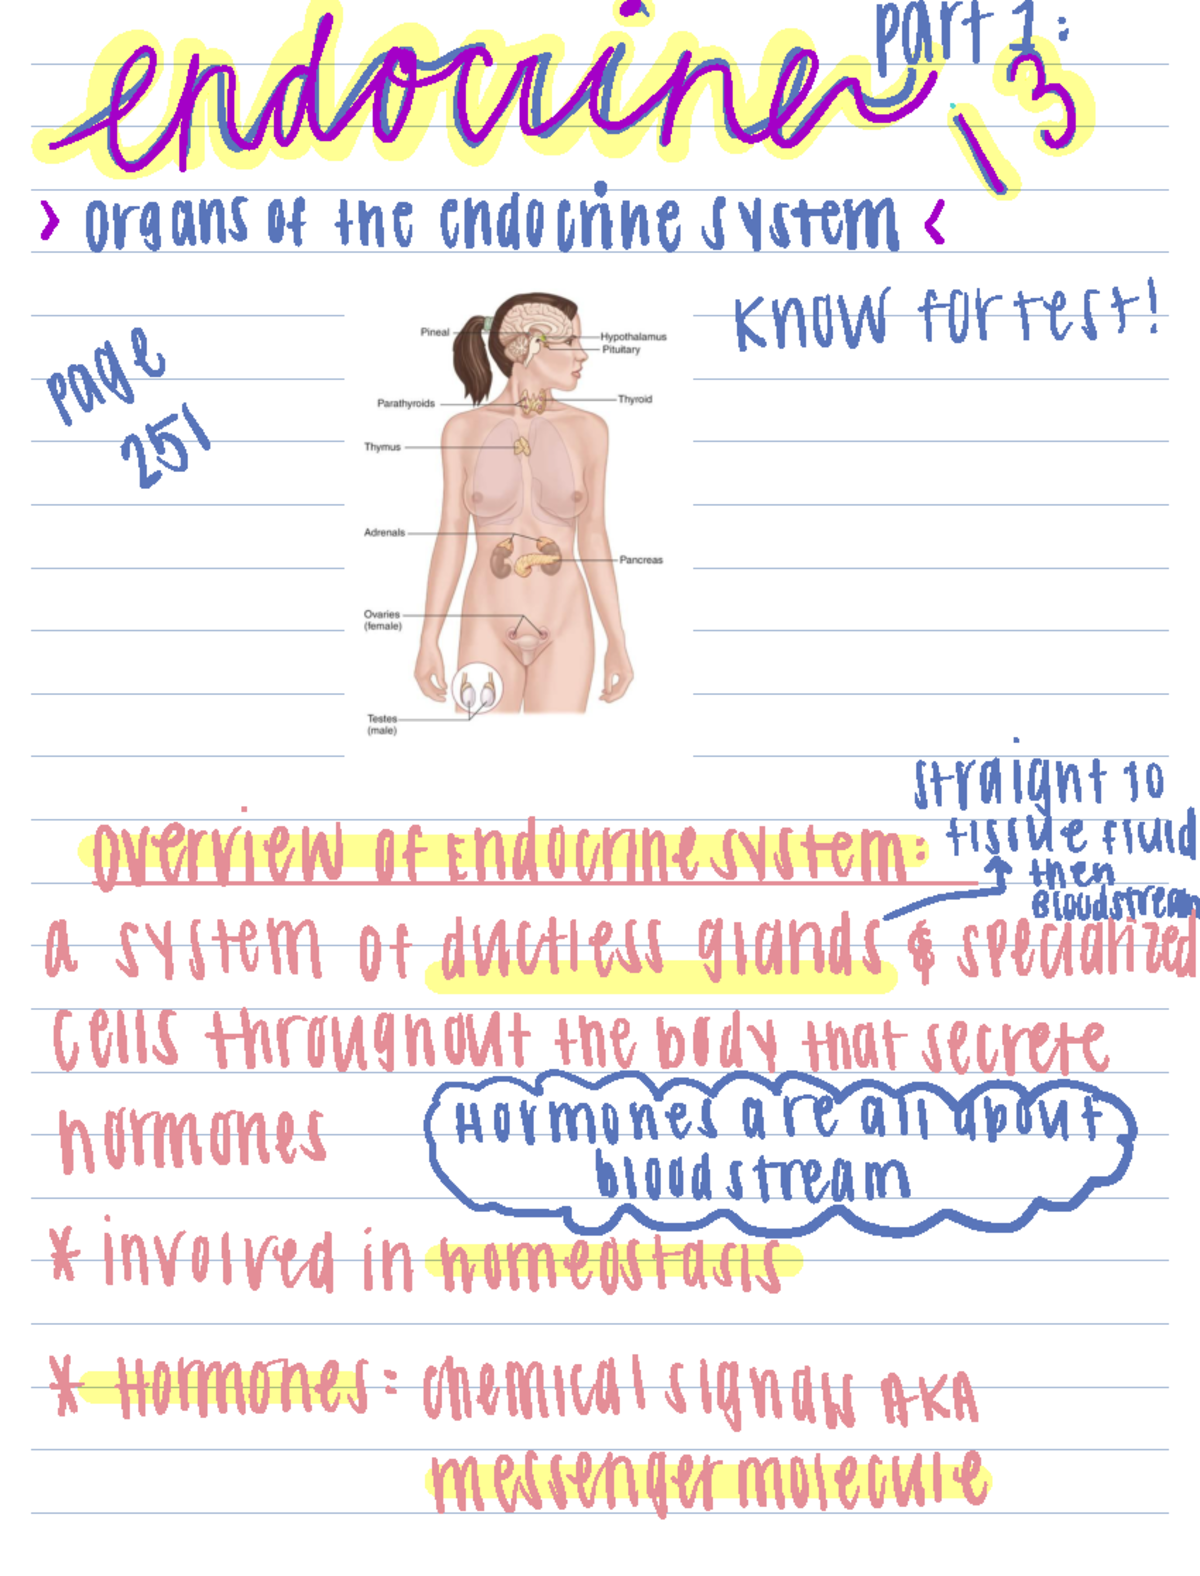 part 1:
endocrine \ 3
> organs of the endocrine system <
Know for test!
page
251
Pineal
Hypothalamus
Pituitary
Parathyroids
Thyroid
Thymus
Adrenals
Pancreas
Ovaries
(female)
Testes
(male)
straight to
tissue fluid
then
Bloodstream
overview of Endocrine system:
a system of ductless glands & specialized
cells throughout the body that secrete
hormones
Hormones are all about
bloodstream
* involved in homeostasis
* Hormones: chemical signals AKA
messenger molecule